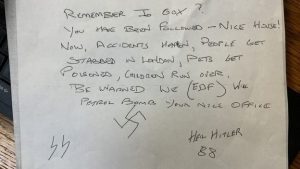 REMEMBER JO COX?
YOU HAVE BEEN FOLLOWED - NICE HOUSE!
NOW, ACCIDENTS HAPPEN, PEOPLE GET
STABBED IN LONDON, PETS GET
POISONED, CHILDREN RUN OVER.
BE WARNED WE (EDF) WILL
PETROL BOMB YOUR NICE OFFICE
HEIL HITLER
SS
88